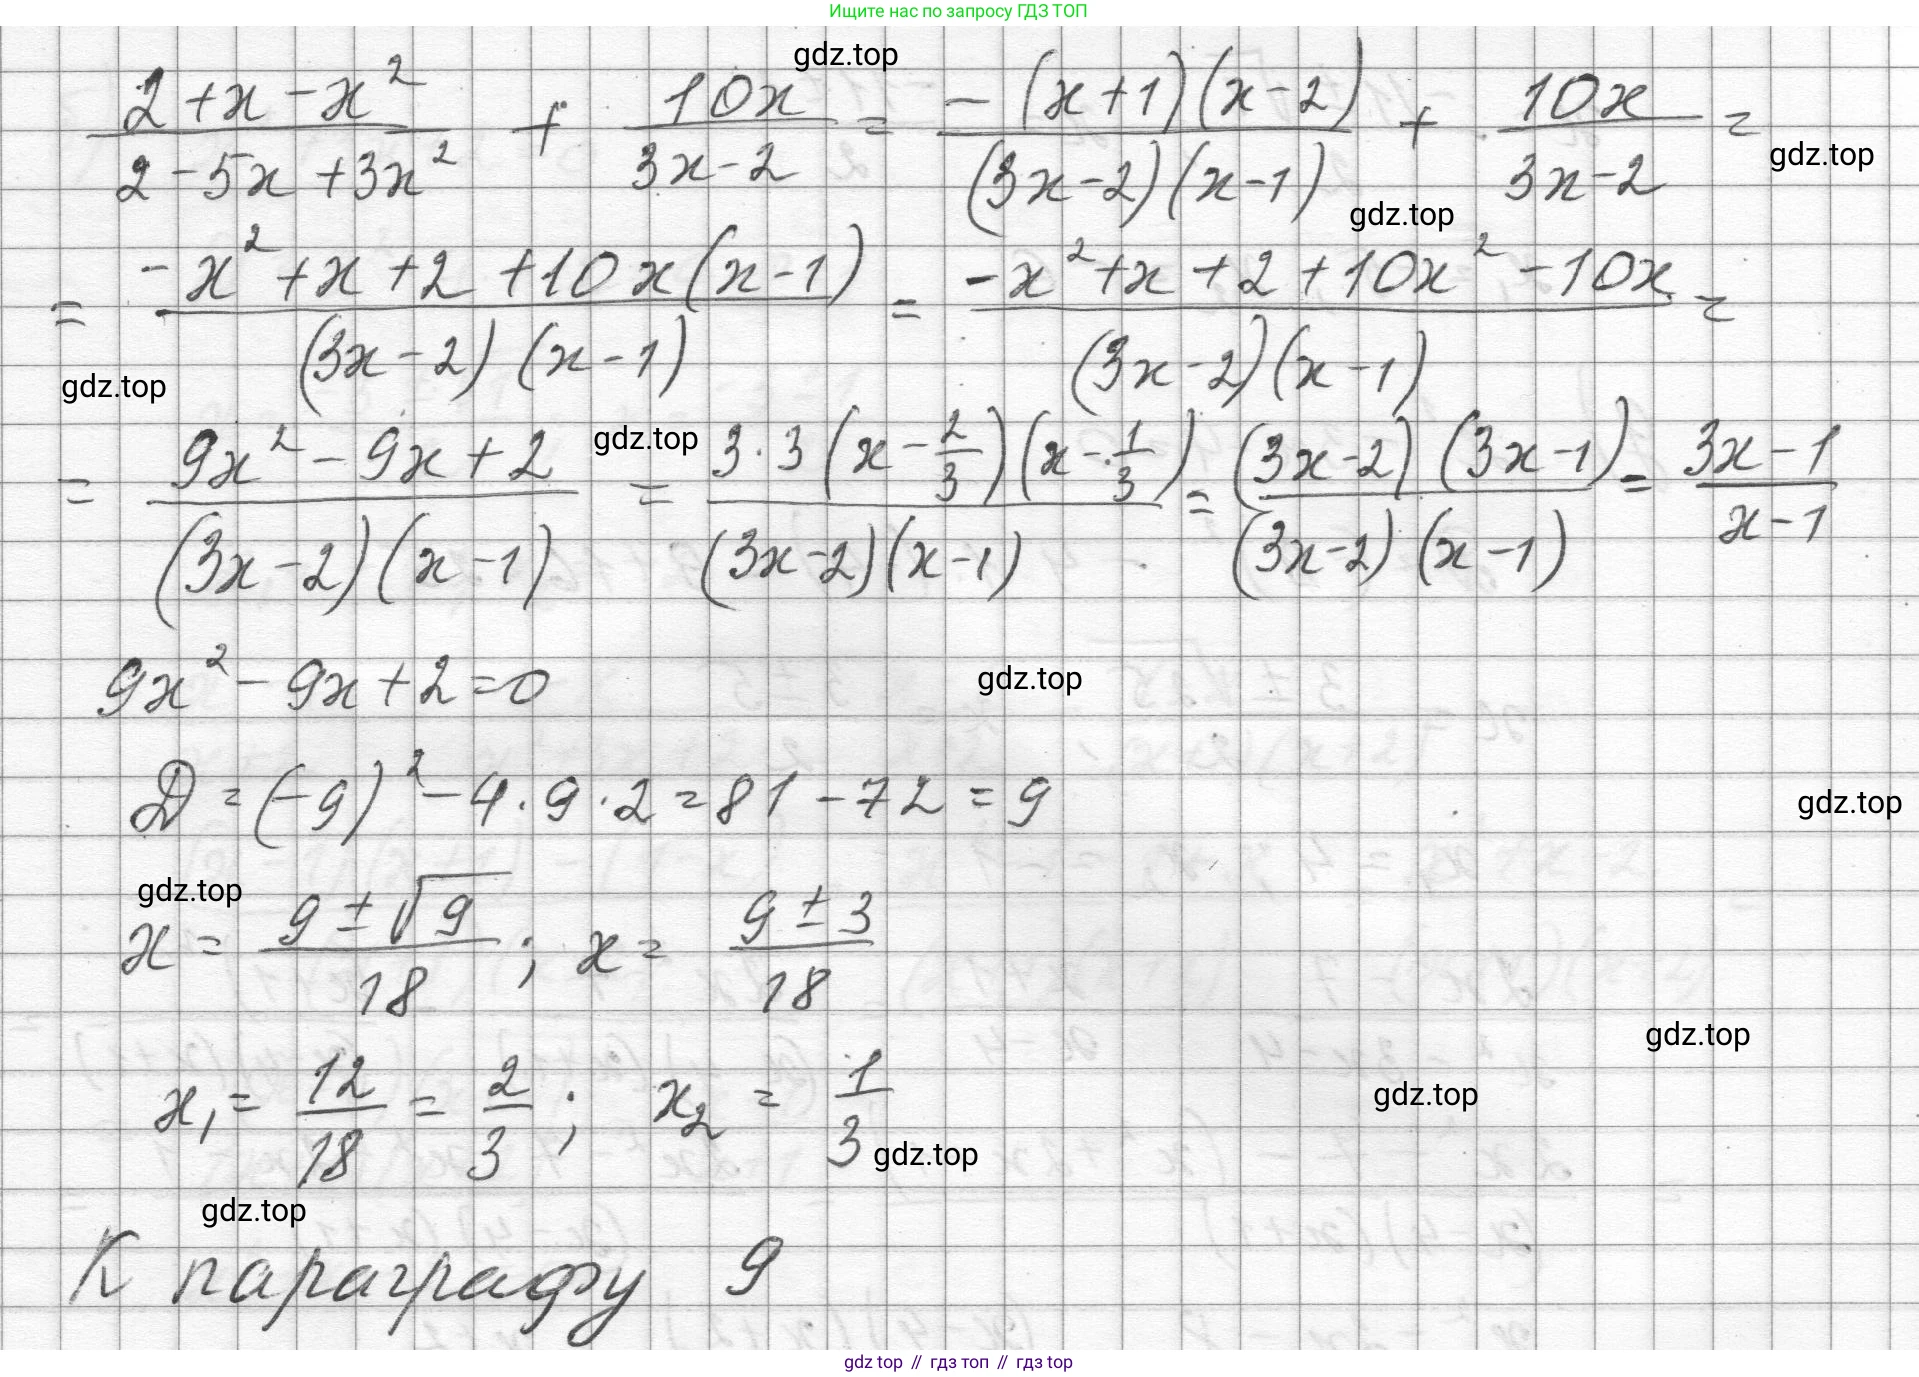 Ищите нас по запросу ГДЗ ТОП
gdz.top
(2+x-x²)/(2-5x+3x²) + 10x/(3x-2) = (-(x+1)(x-2))/((3x-2)(x-1)) + 10x/(3x-2) =
gdz.top
gdz.top
= (-x²+x+2+10x(x-1))/((3x-2)(x-1)) = (-x²+x+2+10x²-10x)/((3x-2)(x-1)) =
gdz.top
gdz.top
= (9x²-9x+2)/((3x-2)(x-1)) = (3·3(x-2/3)(x-1/3))/((3x-2)(x-1)) = ((3x-2)(3x-1))/((3x-2)(x-1)) = (3x-1)/(x-1)
9x²-9x+2=0
gdz.top
D=(-9)²-4·9·2=81-72=9
gdz.top
gdz.top
x = (9±√9)/18; x = (9±3)/18
gdz.top
gdz.top
x₁ = 12/18 = 2/3; x₂ = 1/3
gdz.top
gdz.top
К параграфу 9
gdz.top // гдз топ // гдз top